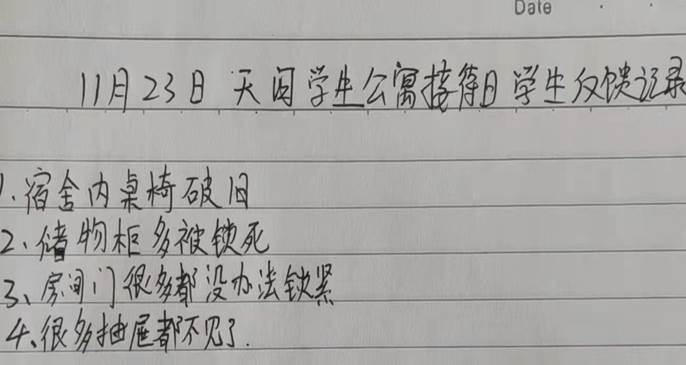 Date
11月23日 天闰学生公寓接待日 学生反馈记录
1.宿舍内桌椅破旧
2、储物柜多被锁死
3、房间门很多都没办法锁紧
4、很多抽屉都不见了.